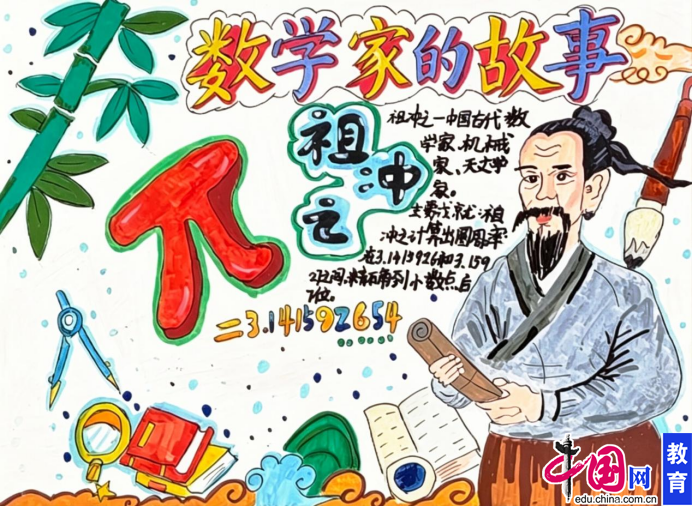 数学家的故事
祖冲之
祖冲之一中国古代数
学家、机械
家、天文学
家。
主要成就:祖
冲之计算出圆周率
在3.1415926和3.159
2之间,精确到小数点后
7位。
π
=3.141592654......
中国网
edu.china.com.cn
教育